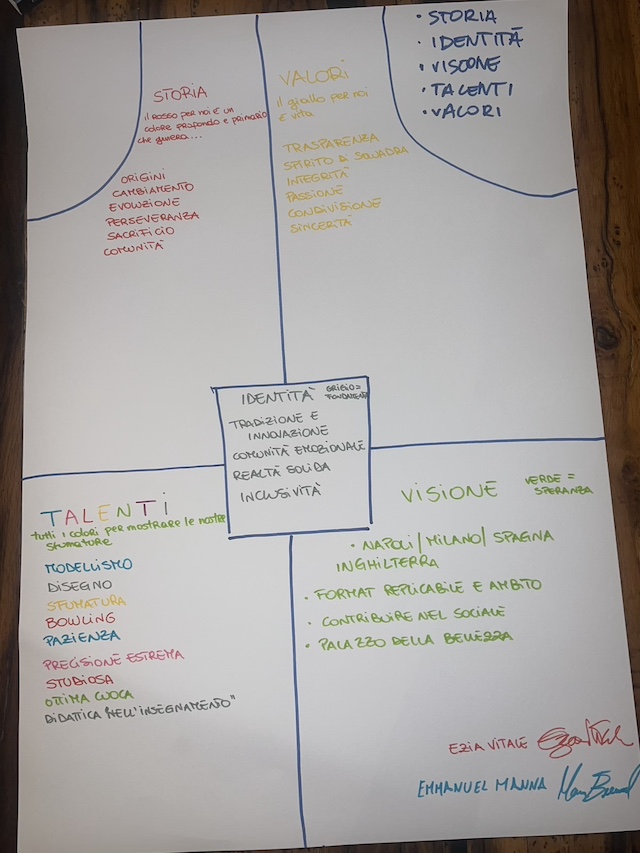 STORIA
il rosso per noi è un
colore profondo e primario
che genera...
ORIGINI
CAMBIAMENTO
EVOLUZIONE
PERSEVERANZA
SACRIFICIO
COMUNITÀ
VALORI
il giallo per noi
è vita
TRASPARENZA
SPIRITO DI SQUADRA
INTEGRITÀ
PASSIONE
CONDIVISIONE
SINCERITÀ
• STORIA
• IDENTITÀ
• VISIONE
• TALENTI
• VALORI
IDENTITÀ GRIGIO =
FONDAMENTA
TRADIZIONE E
INNOVAZIONE
COMUNITÀ EMOZIONALE
REALTÀ SOLIDA
INCLUSIVITÀ
TALENTI
tutti i colori per mostrare le nostre
sfumature
MODELLISMO
DISEGNO
SFUMATURA
BOWLING
PAZIENZA
PRECISIONE ESTREMA
STUDIOSA
OTTIMA CUOCA
DIDATTICA NELL'INSEGNAMENTO"
VISIONE VERDE =
SPERANZA
• NAPOLI/MILANO/SPAGNA
INGHILTERRA
• FORMAT REPLICABILE E AMBITO
• CONTRIBUIRE NEL SOCIALE
• PALAZZO DELLA BELLEZZA
EZIA VITALE
EMMANUEL MANNA